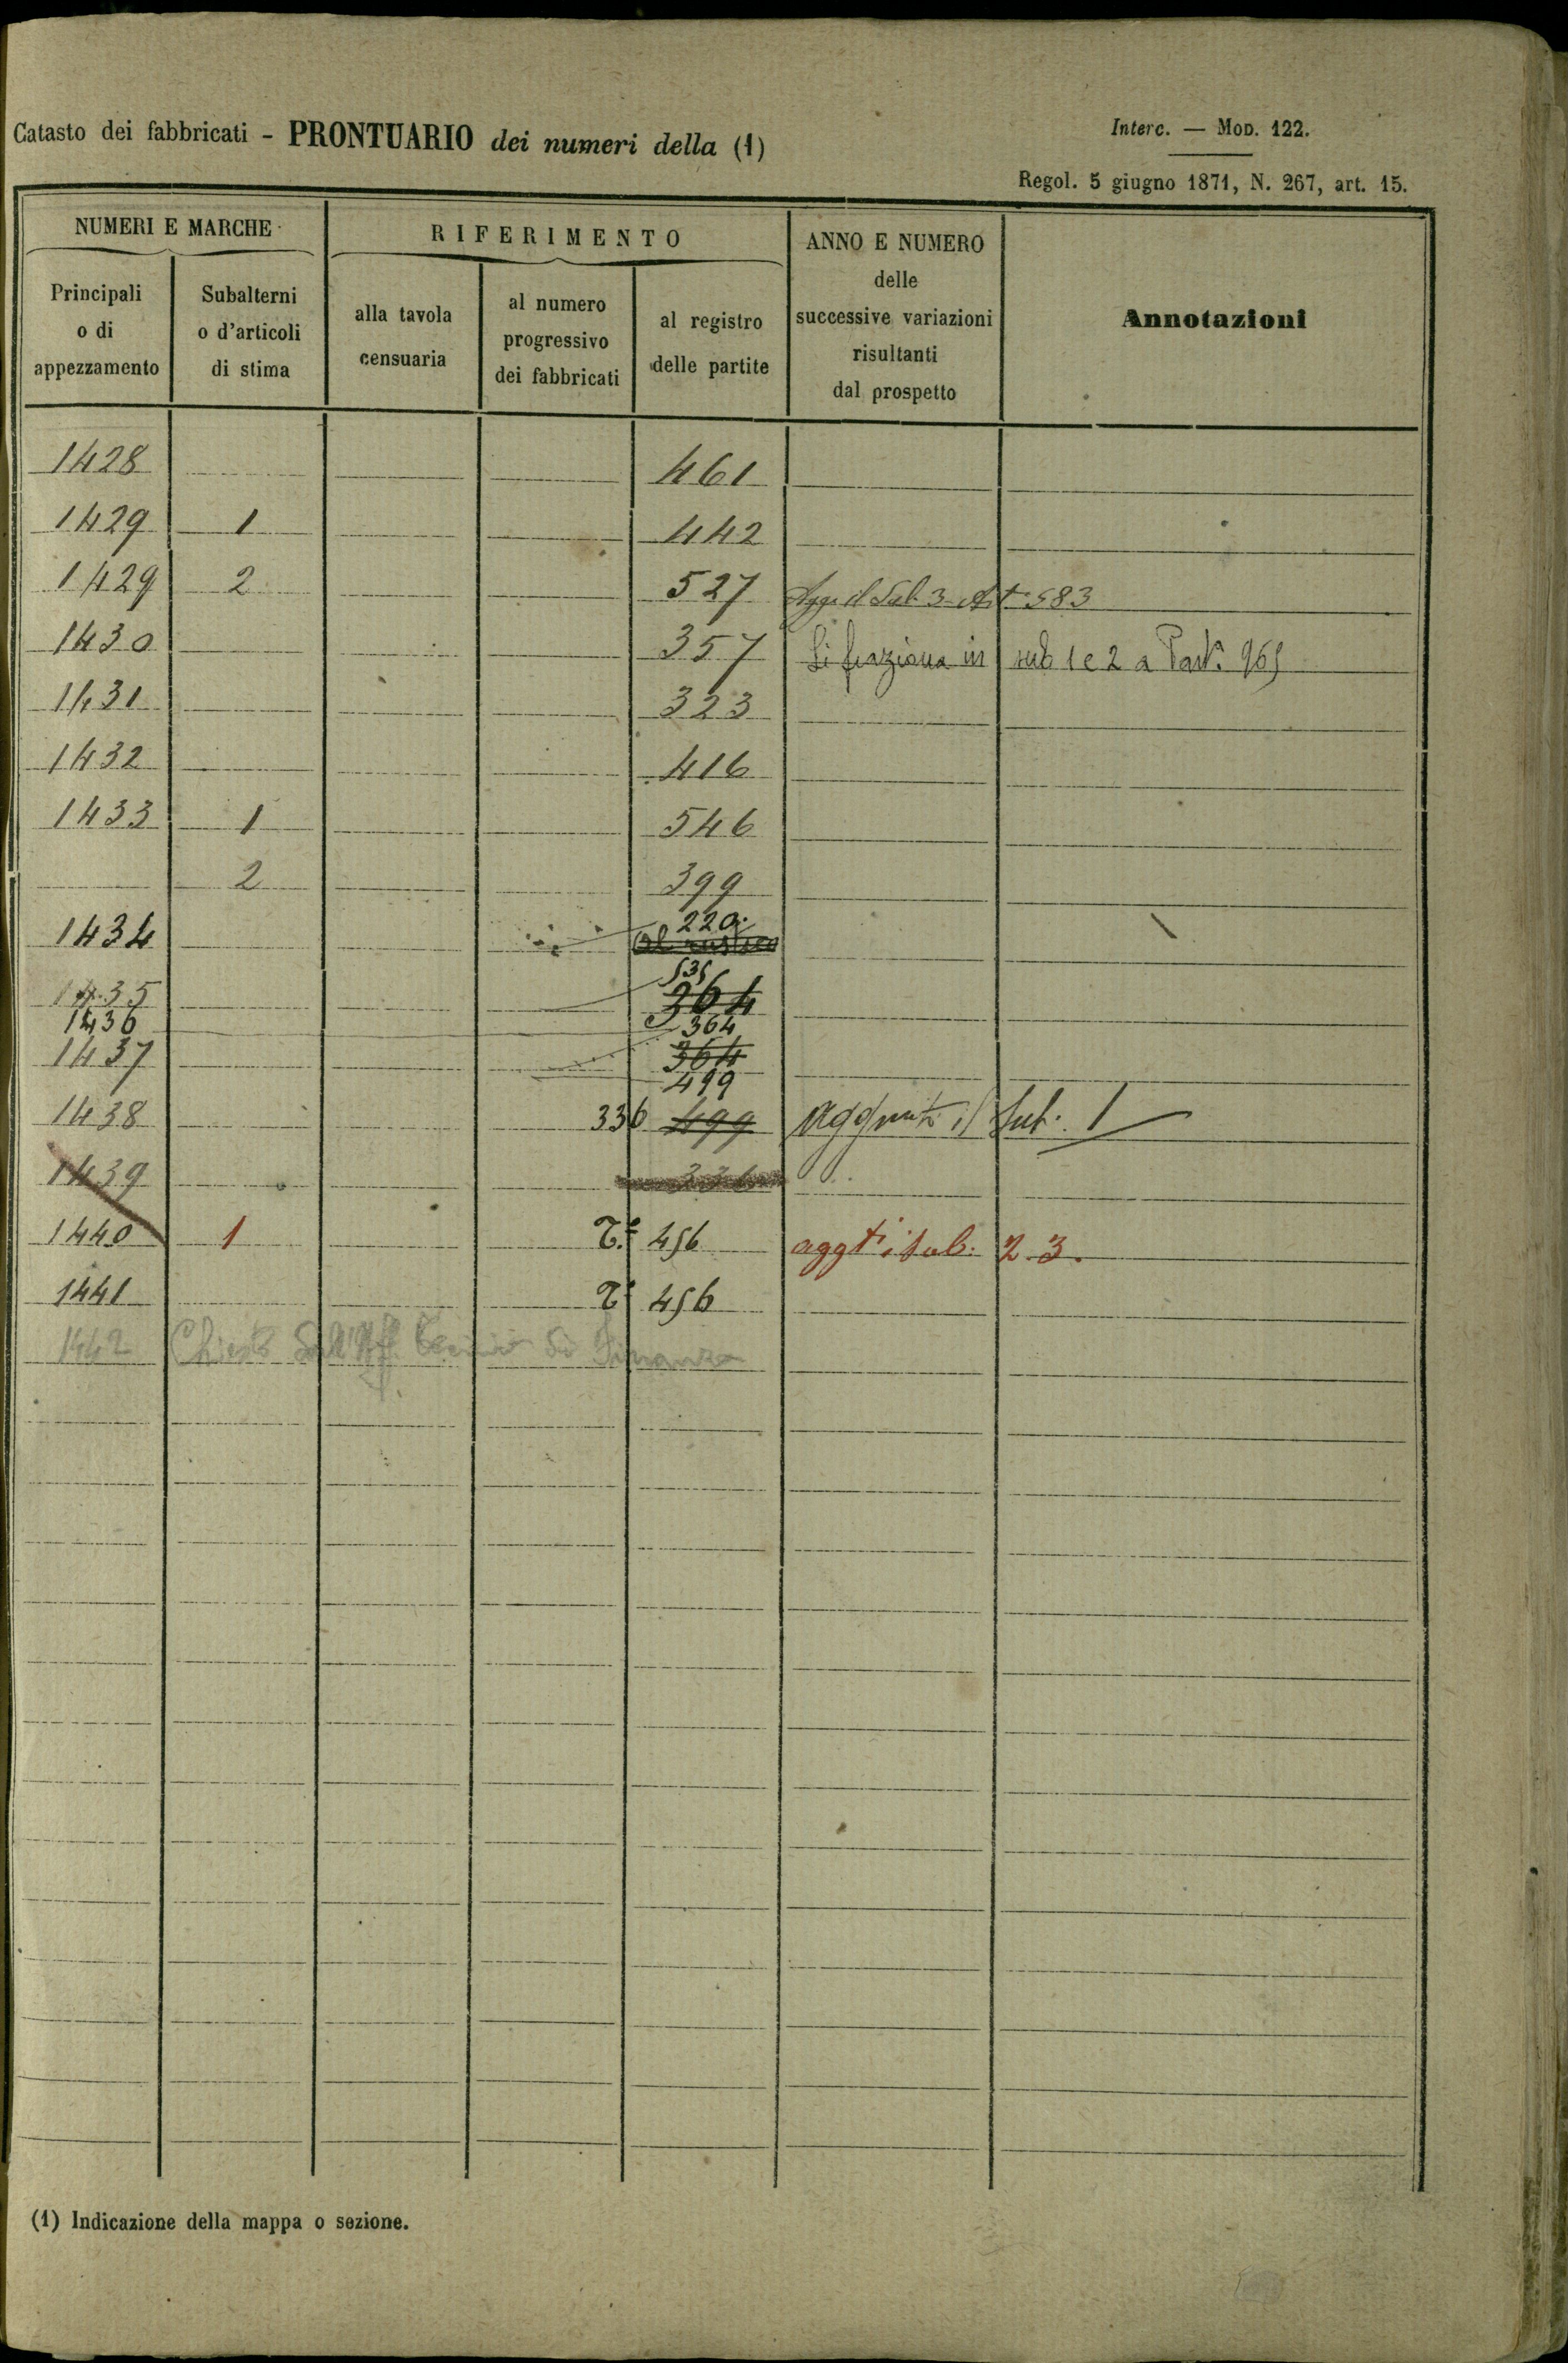 Catasto dei fabbricati - PRONTUARIO dei numeri della (1)
Interc. — MOD. 122.
Regol. 5 giugno 1871, N. 267, art. 15.
NUMERI E MARCHE
RIFERIMENTO
ANNO E NUMERO delle successive variazioni risultanti dal prospetto
Annotazioni
Principali o di appezzamento
Subalterni o d'articoli di stima
alla tavola censuaria
al numero progressivo dei fabbricati
al registro delle partite
1428 461
1429 1 442
1429 2 527 Sub. 3 Art. 583
1430 357 Si fraziona in sub 1 e 2 a Part. 965
1431 323
1432 416
1433 1 546
2 399
1434 220 al rustico
1435 535 364
1436 364
1437 364 499
1438 336 499 il Sub. 1
1439 336
1440 1 456 aggti i sub. 2 3.
1441 456
1442 di Finanza
(1) Indicazione della mappa o sezione.